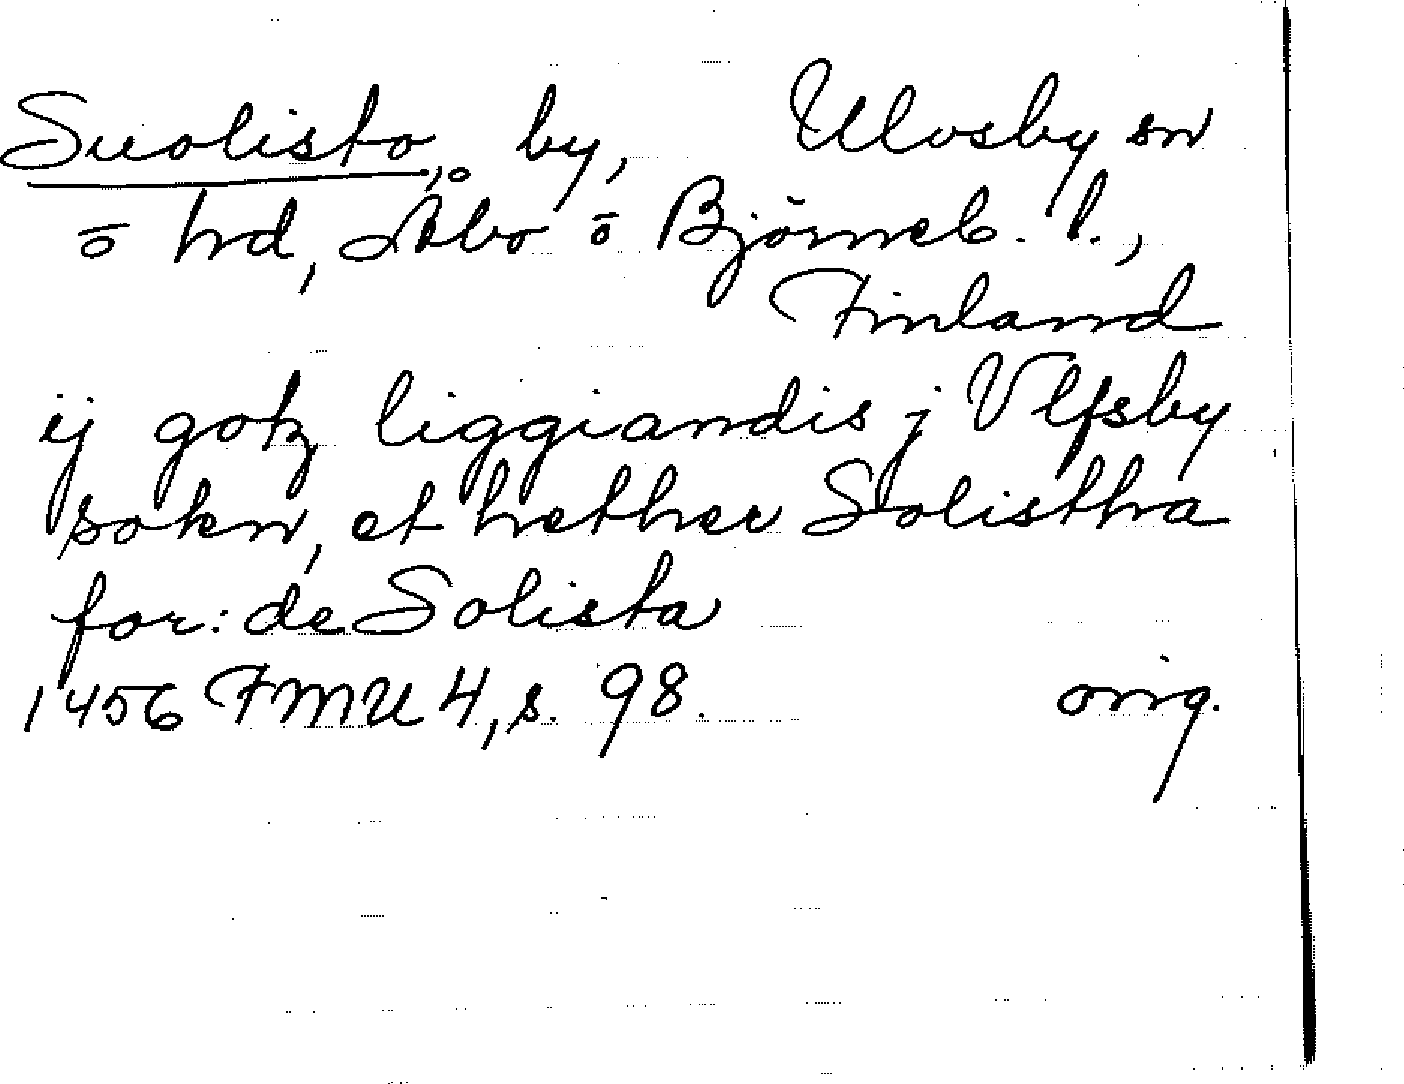 Suolisto, by, Ulvsby sn
o hd, Åbo o Björneb. l.,
Finland
ij gotz liggiandis j Vlfsby
sokn, et hether Solistha
for: de Solista
1456 FMU 4, s. 98. orig.